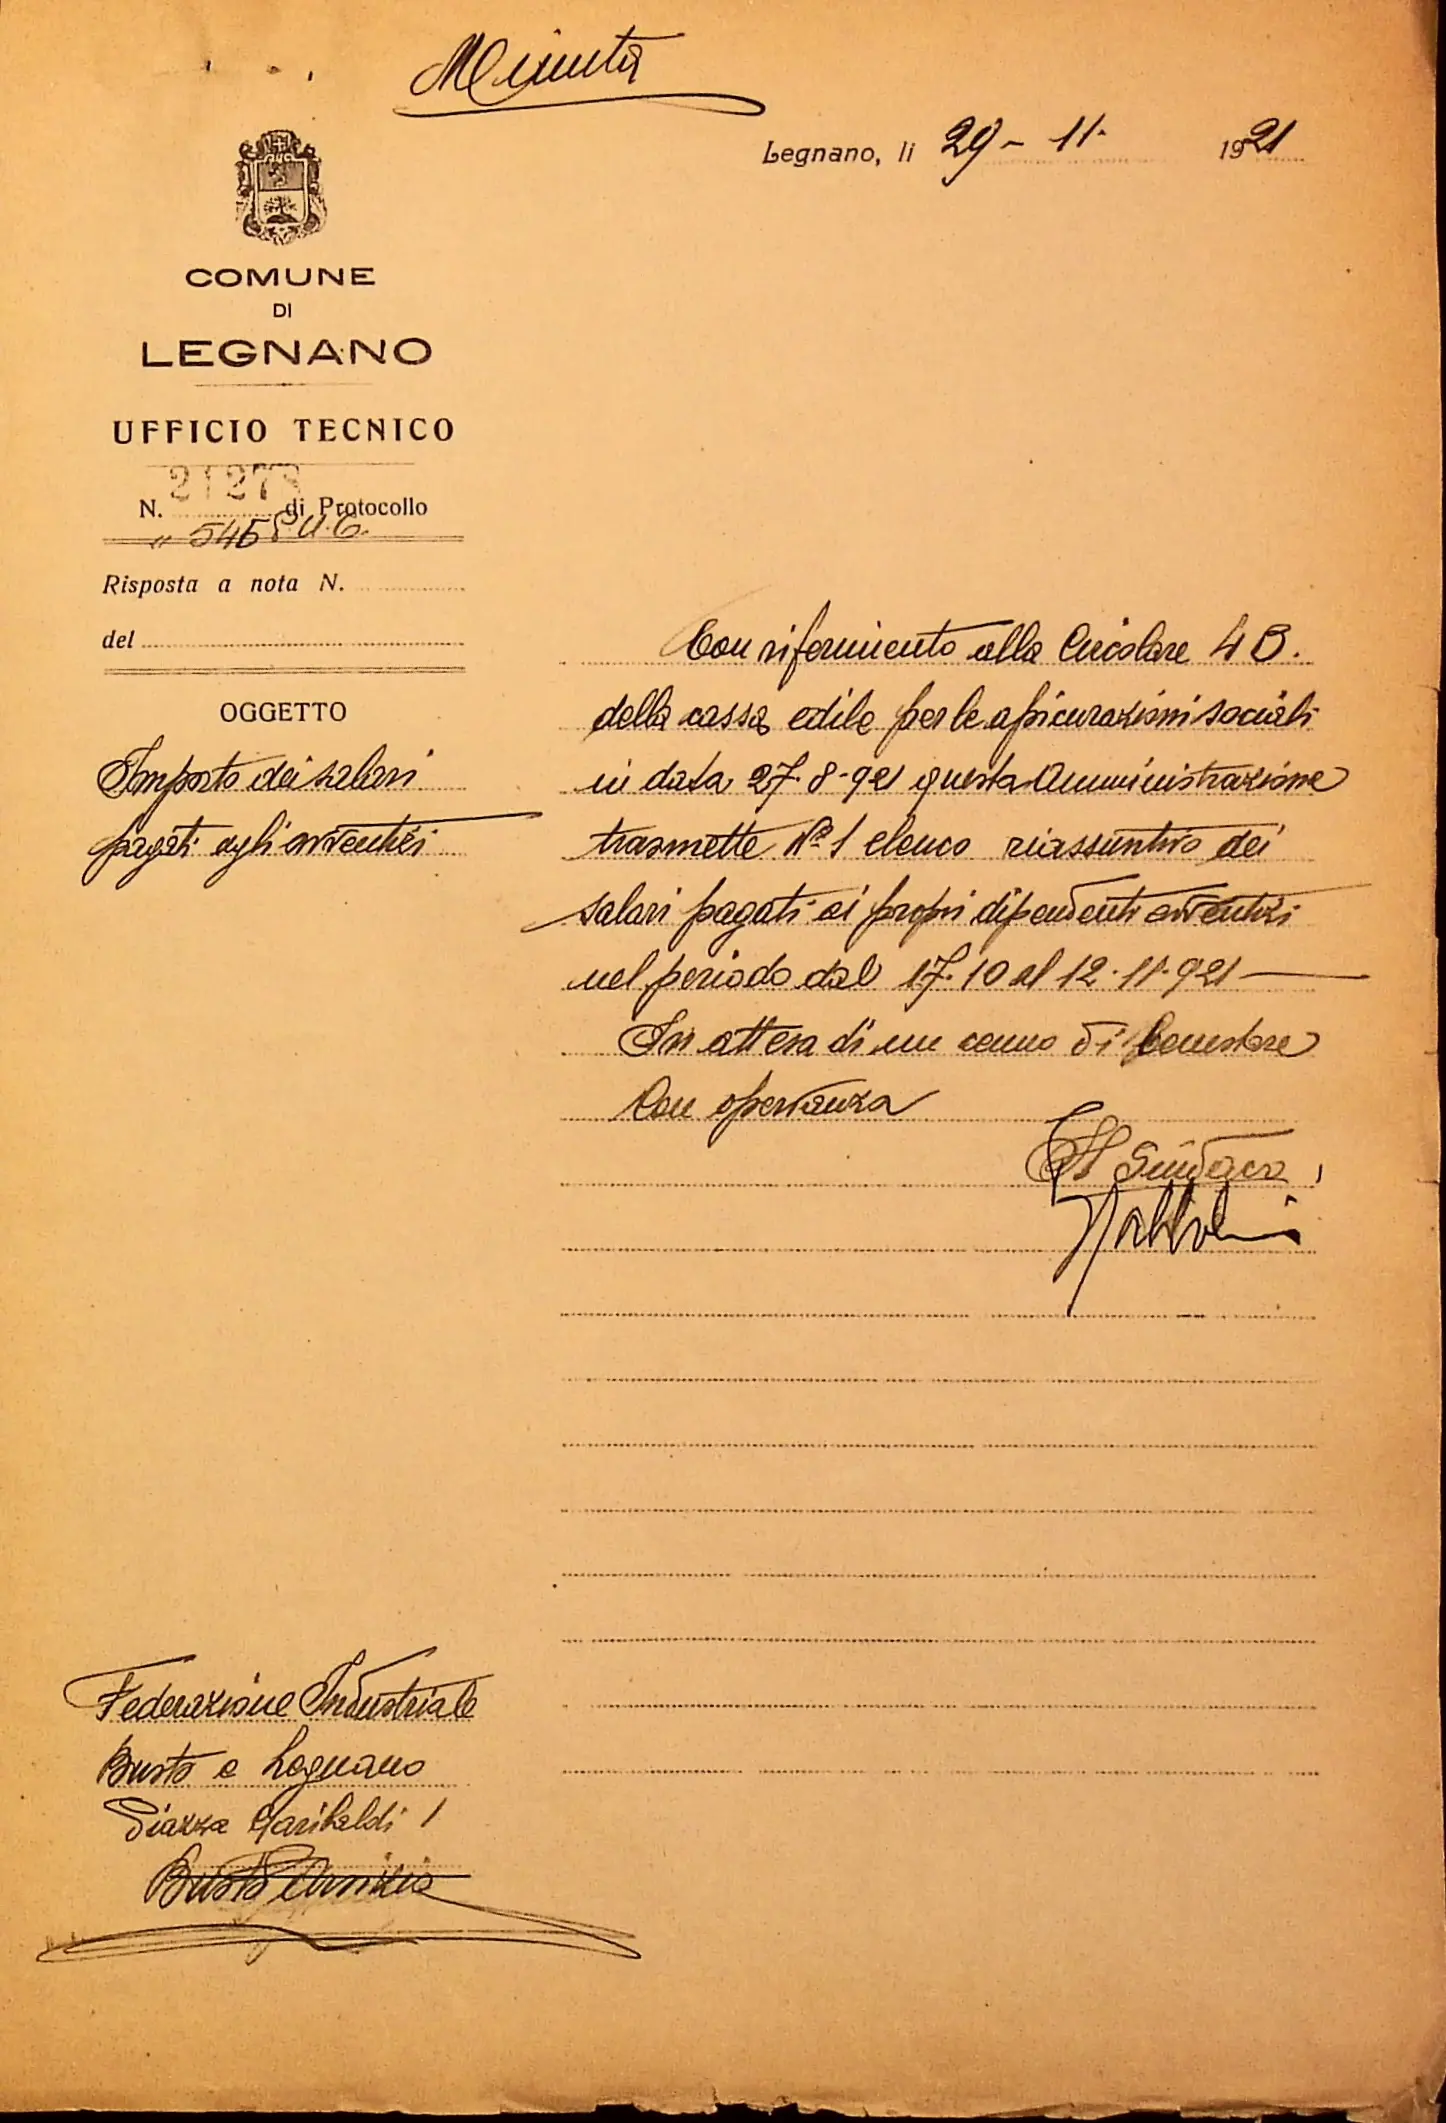 Minuta
Legnano, li 29 - 11 - 1921
COMUNE
DI
LEGNANO
UFFICIO TECNICO
N. 21278 di Protocollo
" 5458 U.C.
Risposta a nota N.
del
OGGETTO
Importo dei salari
pagati agli avventizi
Con riferimento alla Circolare 4 B.
della cassa edile per le assicurazioni sociali
in data 27.8.921 questa Amministrazione
trasmette N° 1 elenco riassuntivo dei
salari pagati ai propri dipendenti avventizi
nel periodo dal 17.10 al 12.11.921
In attesa di un cenno di benestare
Con osservanza
Il Sindaco
Federazione Industriale
Busto e Legnano
Piazza Garibaldi 1
Busto Arsizio